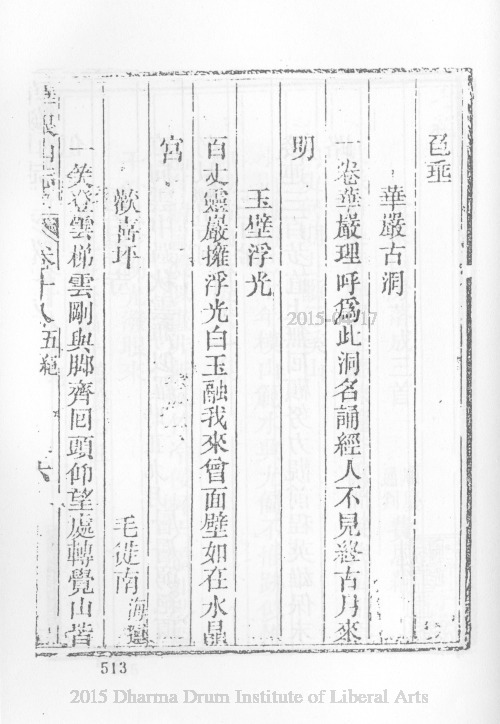 邑乘
華嚴古洞
一卷華嚴理呼爲此洞名誦經人不見終古月來
明
玉壁浮光
百丈靈巖擁浮光白玉融我來曾面壁如在水晶
宮
歡喜坪
毛徙南
一笑登雲梯雲剛與脚齊回頭仰望處轉覺山
山志
卷十八 五絕
2015-0 17
513
2015 Dharma Drum Institute of Liberal Arts